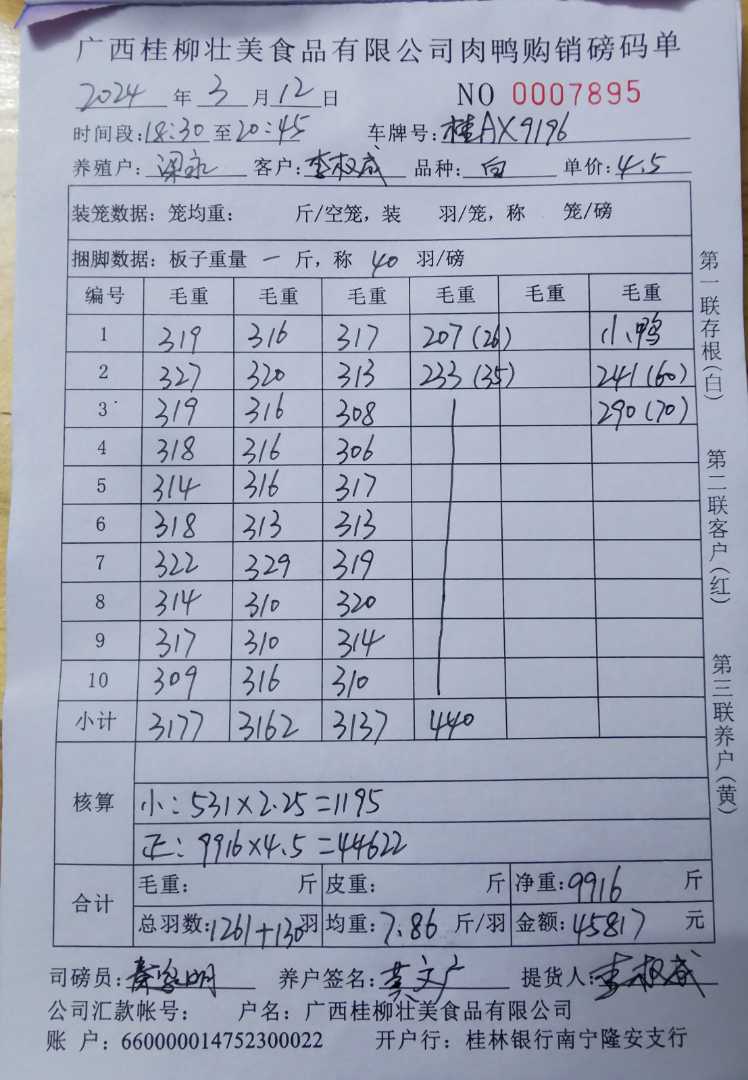 广西桂柳壮美食品有限公司肉鸭购销磅码单
2024 年 3 月 12 日 NO 0007895
时间段: 18:30 至 20:45 车牌号: 桂AX9196
养殖户: 梁永 客户: 李权威 品种: 白 单价: 4.5
装笼数据: 笼均重: 斤/空笼, 装 羽/笼, 称 笼/磅
捆脚数据: 板子重量 一 斤, 称 40 羽/磅
编号 毛重 毛重 毛重 毛重 毛重 毛重
1 319 316 317 207(26) 小鸭
2 327 320 313 233(35) 241(60)
3 319 316 308 290(70)
4 318 316 306
5 314 316 317
6 318 313 313
7 322 329 319
8 314 310 320
9 317 310 314
10 309 316 310
小计 3177 3162 3137 440
核算
小: 531×2.25=1195
正: 9916×4.5=44622
合计
毛重: 斤 皮重: 斤 净重: 9916 斤
总羽数: 1261+130 羽 均重: 7.86 斤/羽 金额: 45817 元
司磅员: 养户签名: 黄文广 提货人: 李权威
公司汇款帐号: 户名: 广西桂柳壮美食品有限公司
账 户: 660000014752300022 开户行: 桂林银行南宁隆安支行
第一联存根(白)
第二联客户(红)
第三联养户(黄)